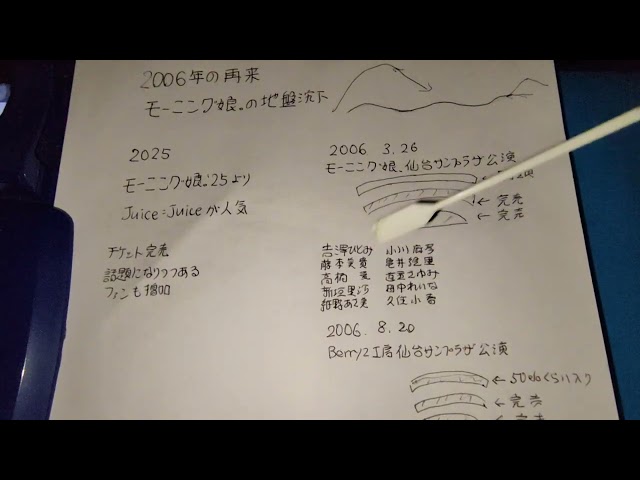 2006年の再来
モーニング娘。の地盤沈下
2025
モーニング娘。'25より
Juice=Juiceが人気
チケット完売
話題になりつつある
ファンも増加
2006 3.26
モーニング娘。仙台サンプラザ公演
← 完売
← 完売
吉澤ひとみ 小川麻琴
藤本美貴 亀井絵里
高橋 愛 道重さゆみ
新垣里沙 田中れいな
紺野あさ美 久住小春
2006. 8. 20
Berryz工房仙台サンプラザ公演
← 50%くらい入り
← 完売
← 完売